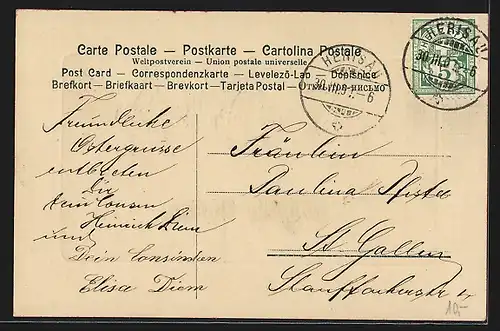 Carte Postale – Postkarte – Cartolina Postale
Weltpostverein – Union postale universelle
Post Card – Correspondenzkarte – Levelező-Lap – Dopisnice
Brefkort – Briefkaart – Brevkort – Tarjeta Postal – Открытое письмо
HERISAU
HERISAU
5
Freundliche
Ostergrüsse
entbieten
Dir
dein Cousin
Heinrich Diem
und
Dein Cousinchen
Elisa Diem
Fräulein
Paulina
St. Gallen
10,-